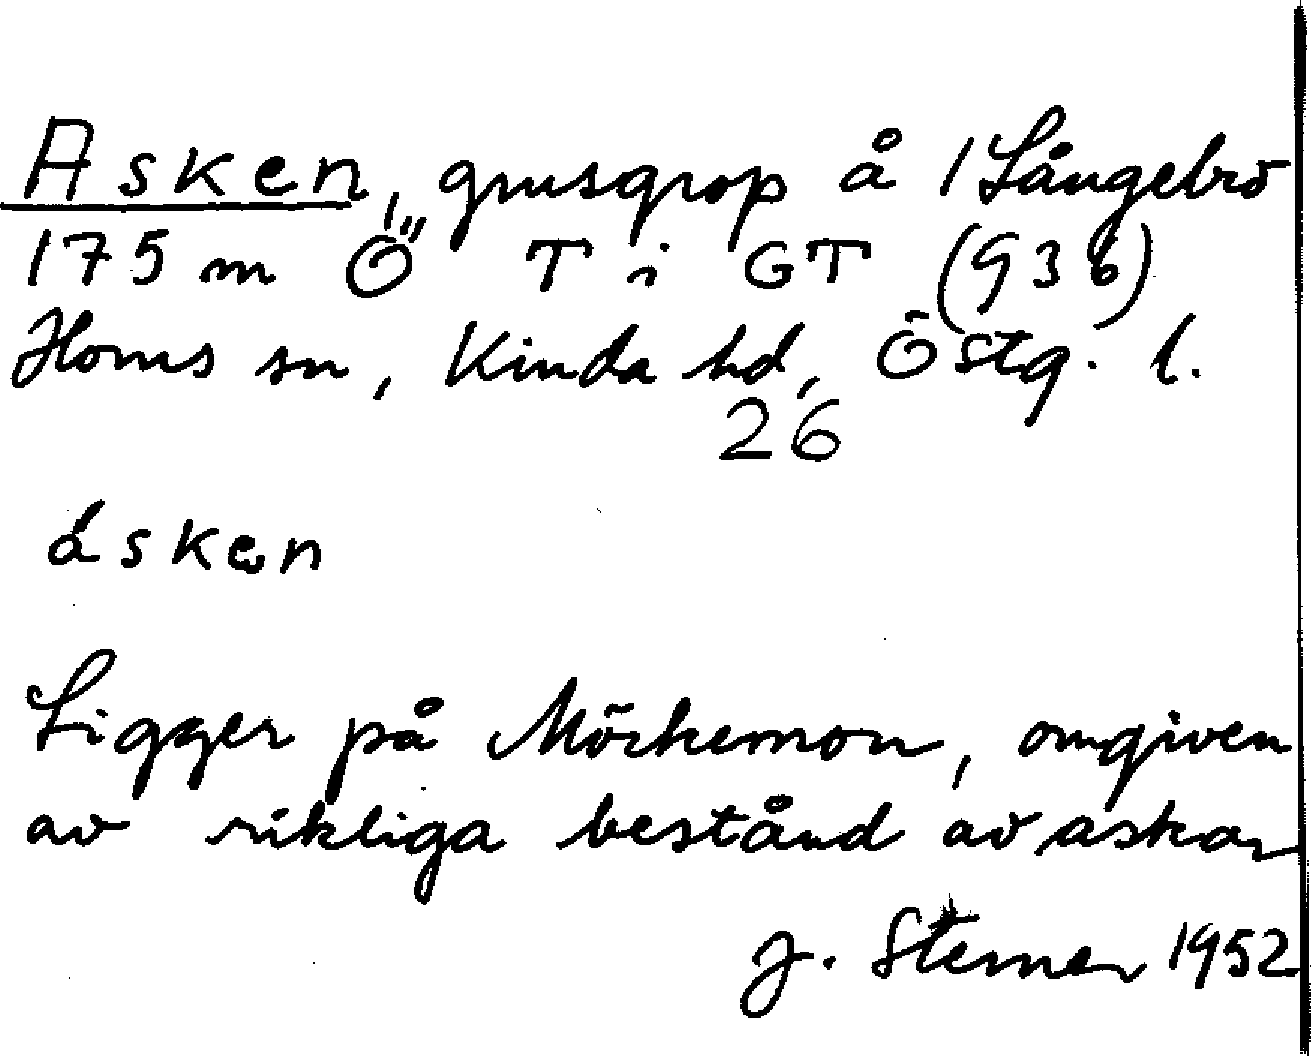 Asken, grusgrop å 1 Långebrö
175 m Ö" T i GT (936)
Horns sn, Kinda hd, Östg. l.
26
áskən
Ligger på Mörkemon, omgiven
av rikliga bestånd av askar
J. Sterner 1952